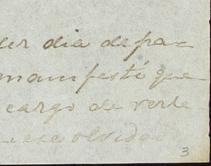 der dia de pa-
manifesté que
cargo de verle
ese olvido
3